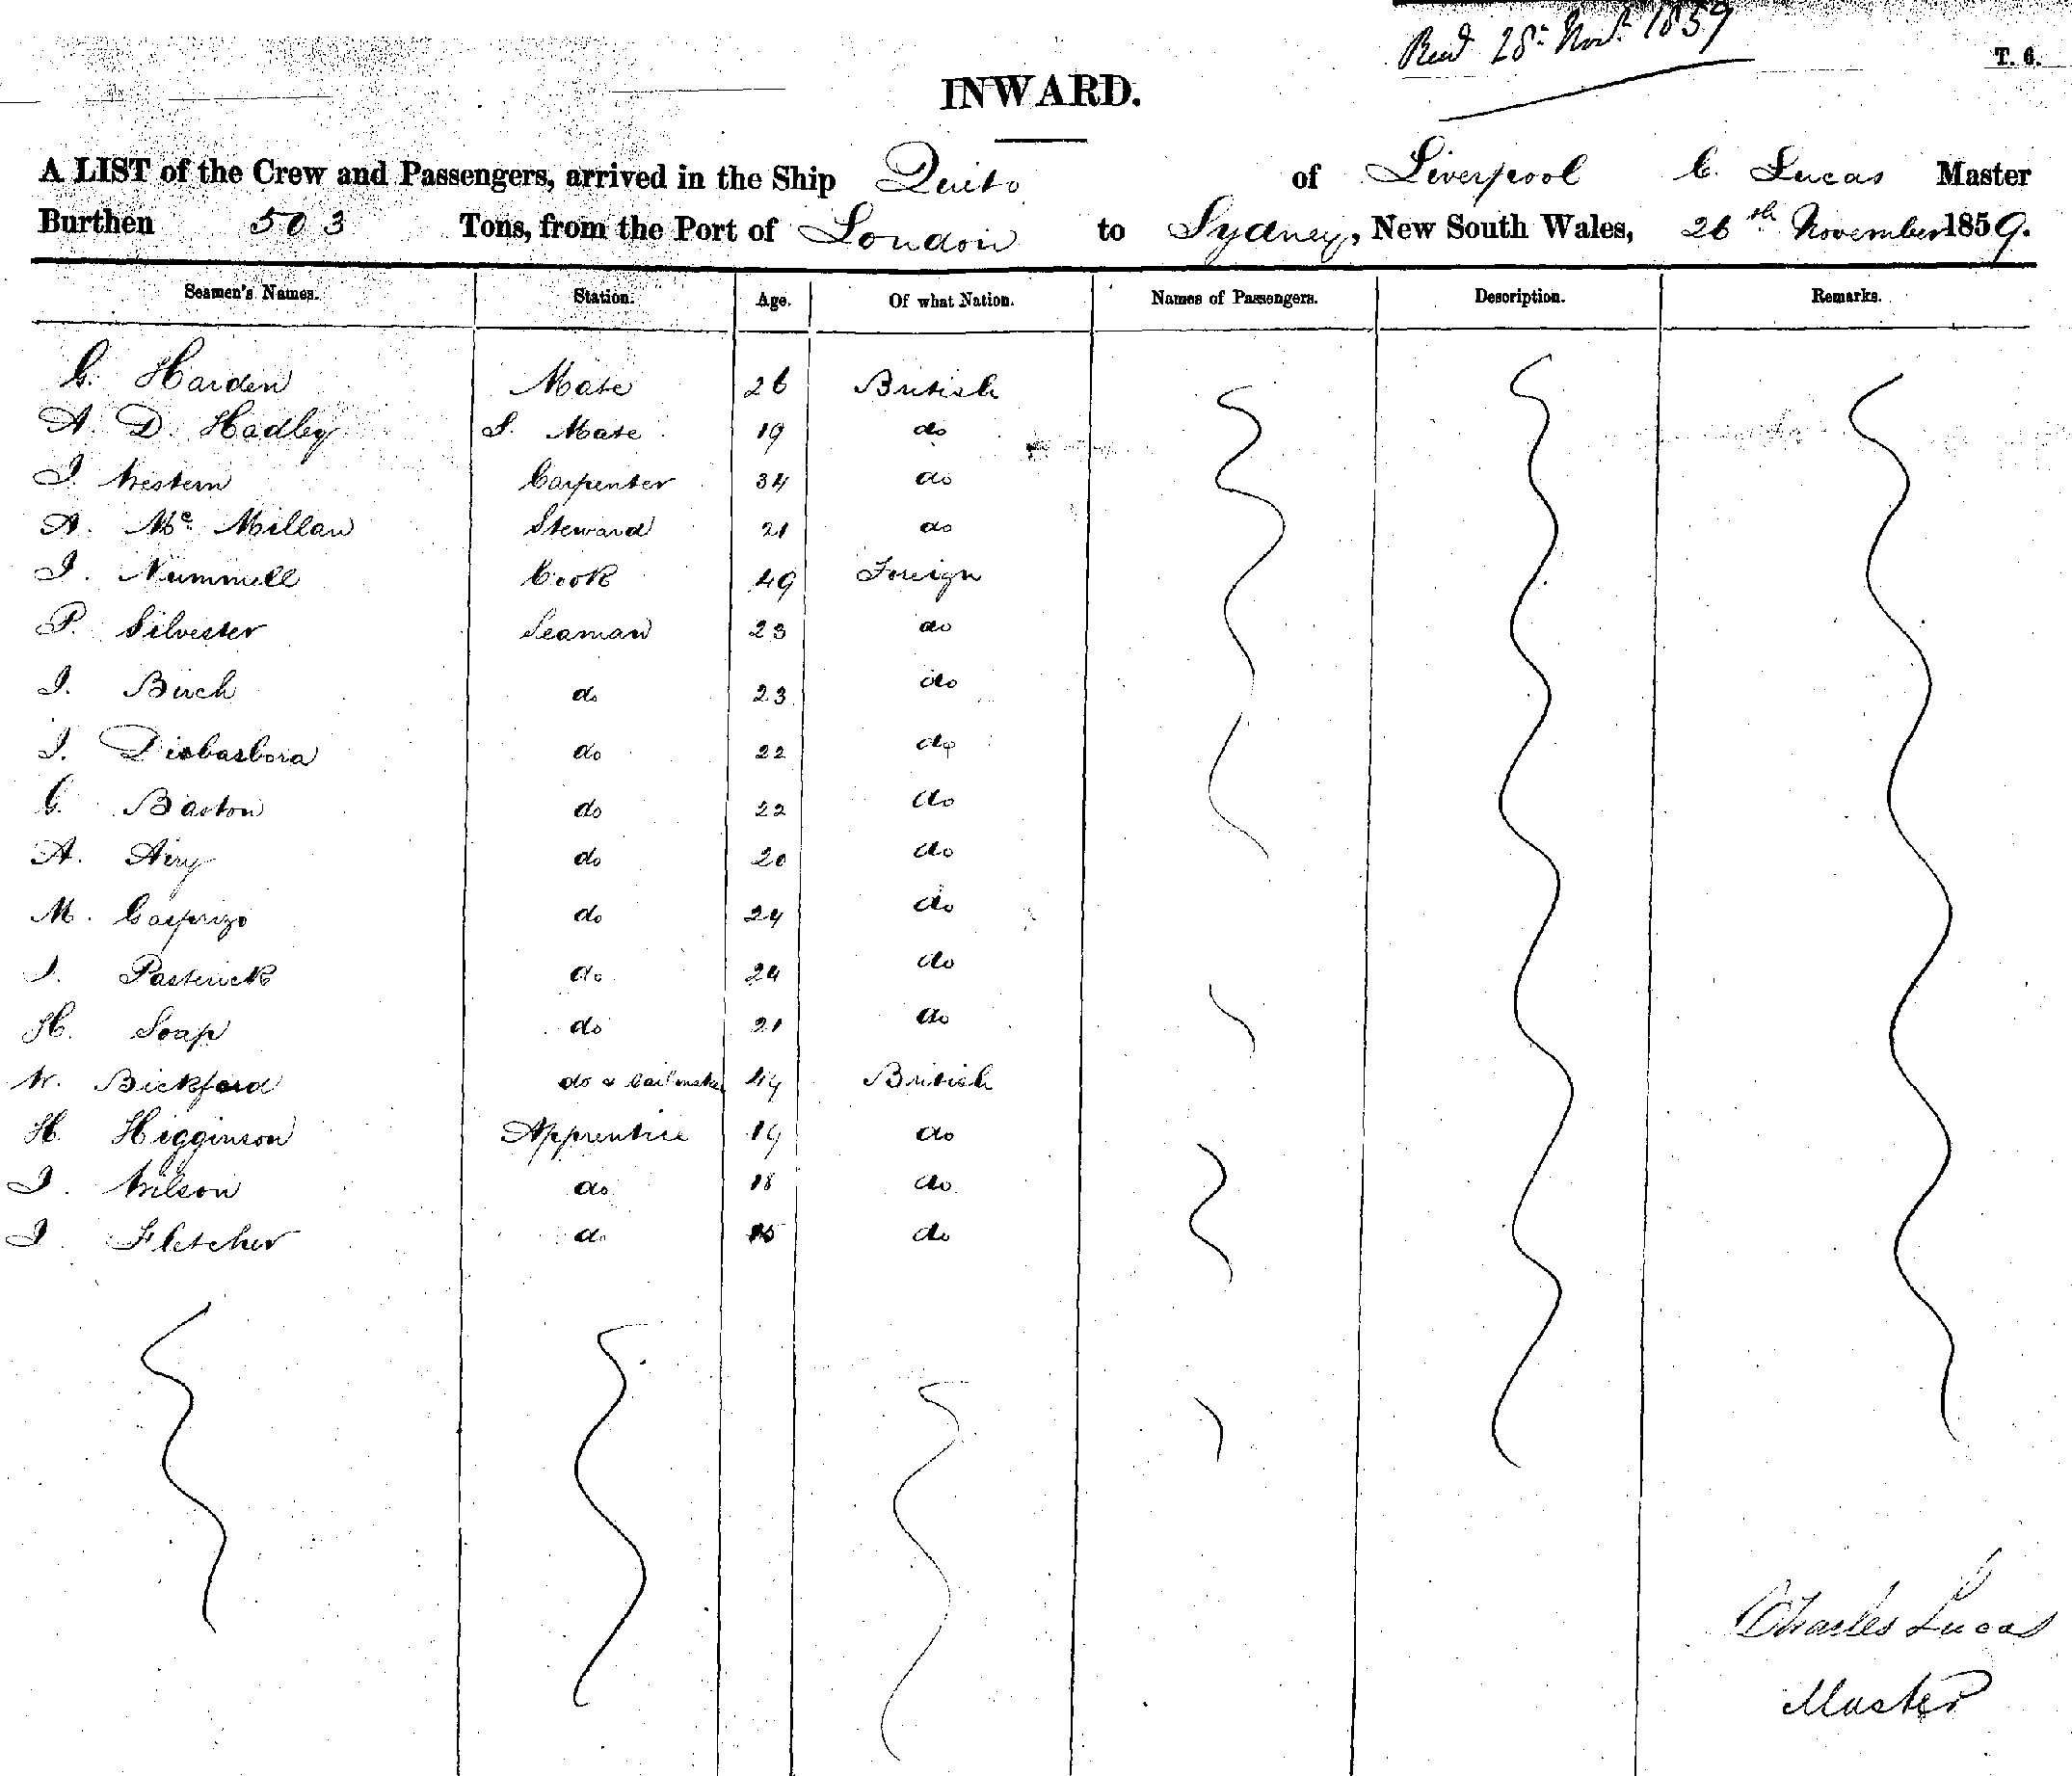 Recd 28th Novr. 1859
T. 6.
INWARD.
A LIST of the Crew and Passengers, arrived in the Ship Quito of Liverpool C. Lucas Master
Burthen 503 Tons, from the Port of London to Sydney, New South Wales, 26th November 1859.
Seamen's Names. Station. Age. Of what Nation. Names of Passengers. Description. Remarks.
C. Harden Mate 26 British
A. D. Hadley S. Mate 19 do
J. Western Carpenter 34 do
A. Mc Millan Steward 21 do
J. Nummell Cook 49 Foreign
P. Silvester Seaman 23 do
J. Birch do 23 do
J. do 22 do
C. Barton do 22 do
A. Airy do 20 do
M. do 24 do
J. Pasterick do 24 do
H. Soap do 21 do
W. Bickford do & Sailmaker 44 British
H. Higginson Apprentice 19 do
J. Wilson do 18 do
J. Fletcher do do
Charles Lucas
Master